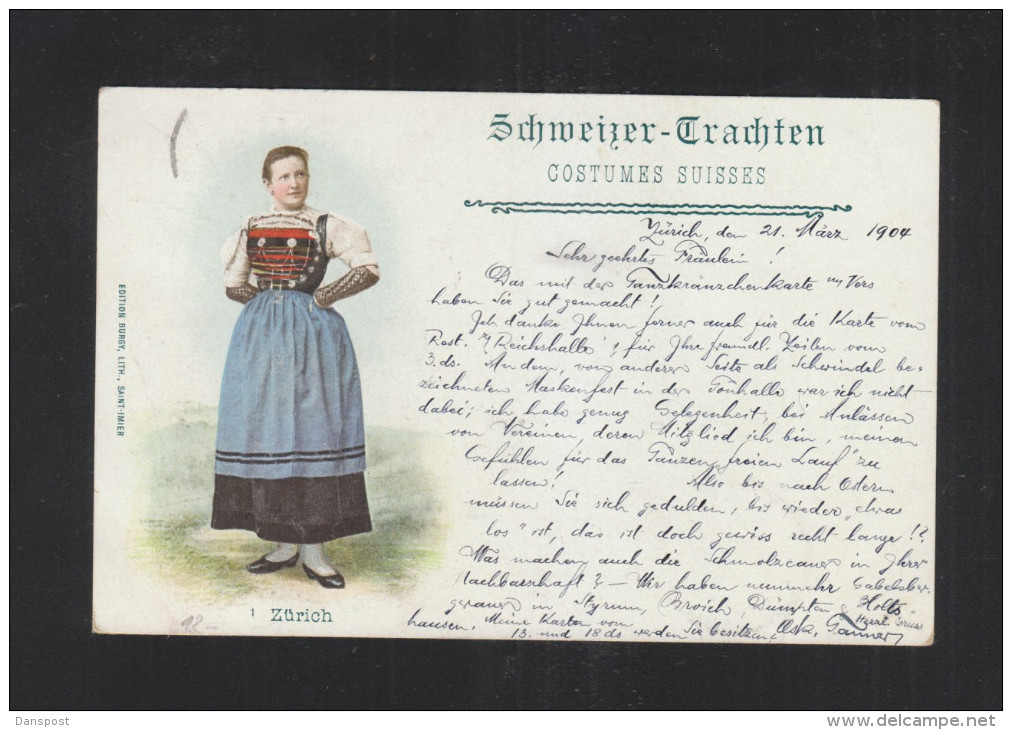 Schweizer-Trachten
COSTUMES SUISSES
Zürich, den 21. März 1904
Sehr geehrtes Fräulein!
Das mit der Tanzkränzchenkarte m/ Vers
haben Sie gut gemacht!
Ich danke Ihnen ferner auch für die Karte vom
Rest. "Reichshalle", für Ihre freundl. Zeilen vom
3. ds. An dem, von anderer Seite als Schwindel be-
zeichneten Maskenfest in der Tonhalle war ich nicht
dabei; ich habe genug Gelegenheit, bei Anlässen
von Vereinen, deren Mitglied ich bin, meinen
Gefühlen für das Tanzen "freien Lauf" zu
lassen! Also bis nach Ostern
müssen Sie sich gedulden, bis wieder "etwas
los" ist, das ist doch gewiss recht lange!?
Was machen auch die in Ihrer
Nachbarschaft? – Wir haben nunmehr Gabelsber-
geraner in Styrum, Broich, Dümpten & Holts-
hausen. Meine Karten vom
13. und 18 ds werden Sie besitzen.
Herzl. Gruss
Osk. Tanner
EDITION BURGY, LITH., SAINT-IMIER
1 Zürich
12-
Danspost
delcampe.net